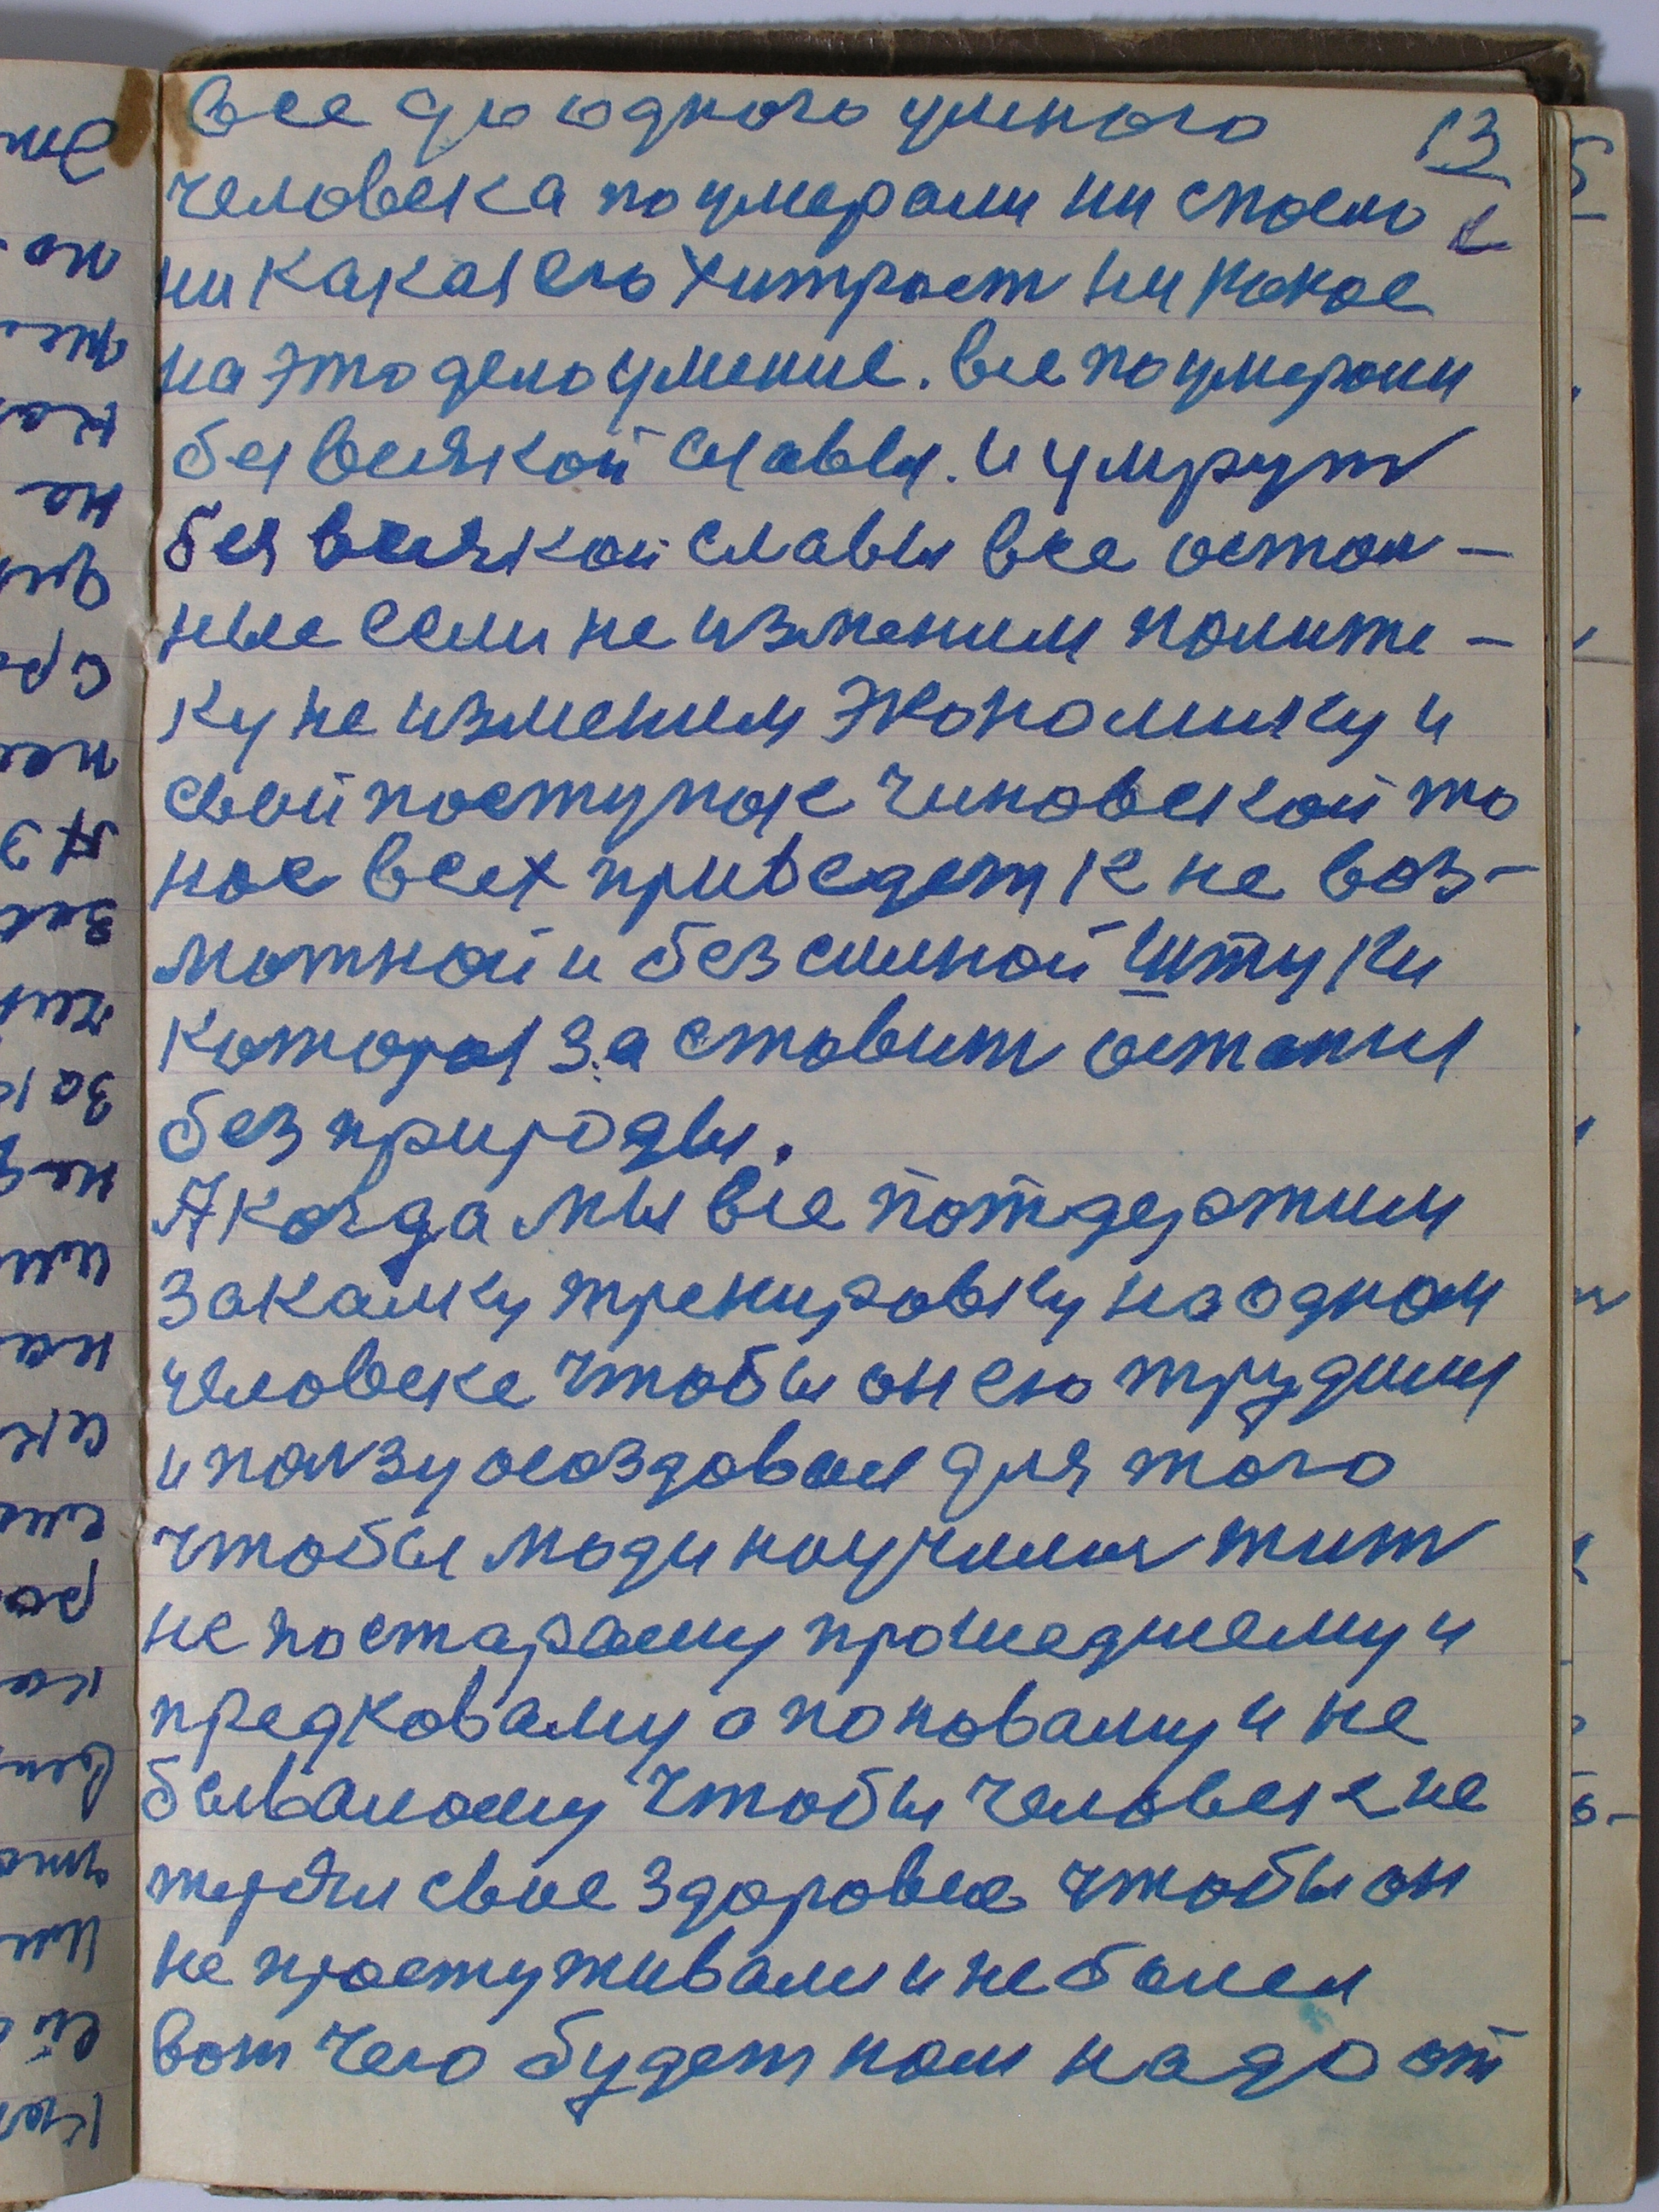 все до одного умного 13
человека поумерали ни спасло
ни какая его хитраст ни какое
на это дело умение. все поумерали
без всякой славы. и умрут
без всякой славы все осталь-
ные если не изменим полите-
ку не изменим экономику и
свой поступок чиновский то
нас всех приведет к не воз-
можной и безсилной штуки
которая заставит остатся
без природы.
А когда мы все потдержим
закалку тренировку на одном
человеке чтобы он ею трудился
и ползу создовал для того
чтобы люди научились жит
не постарому прошедшему и
предковаму а поноваму и не
бывалому чтобы человек не
терял свае здоровье чтобы он
не простуживался и не болел
вот чего будет нам надо от